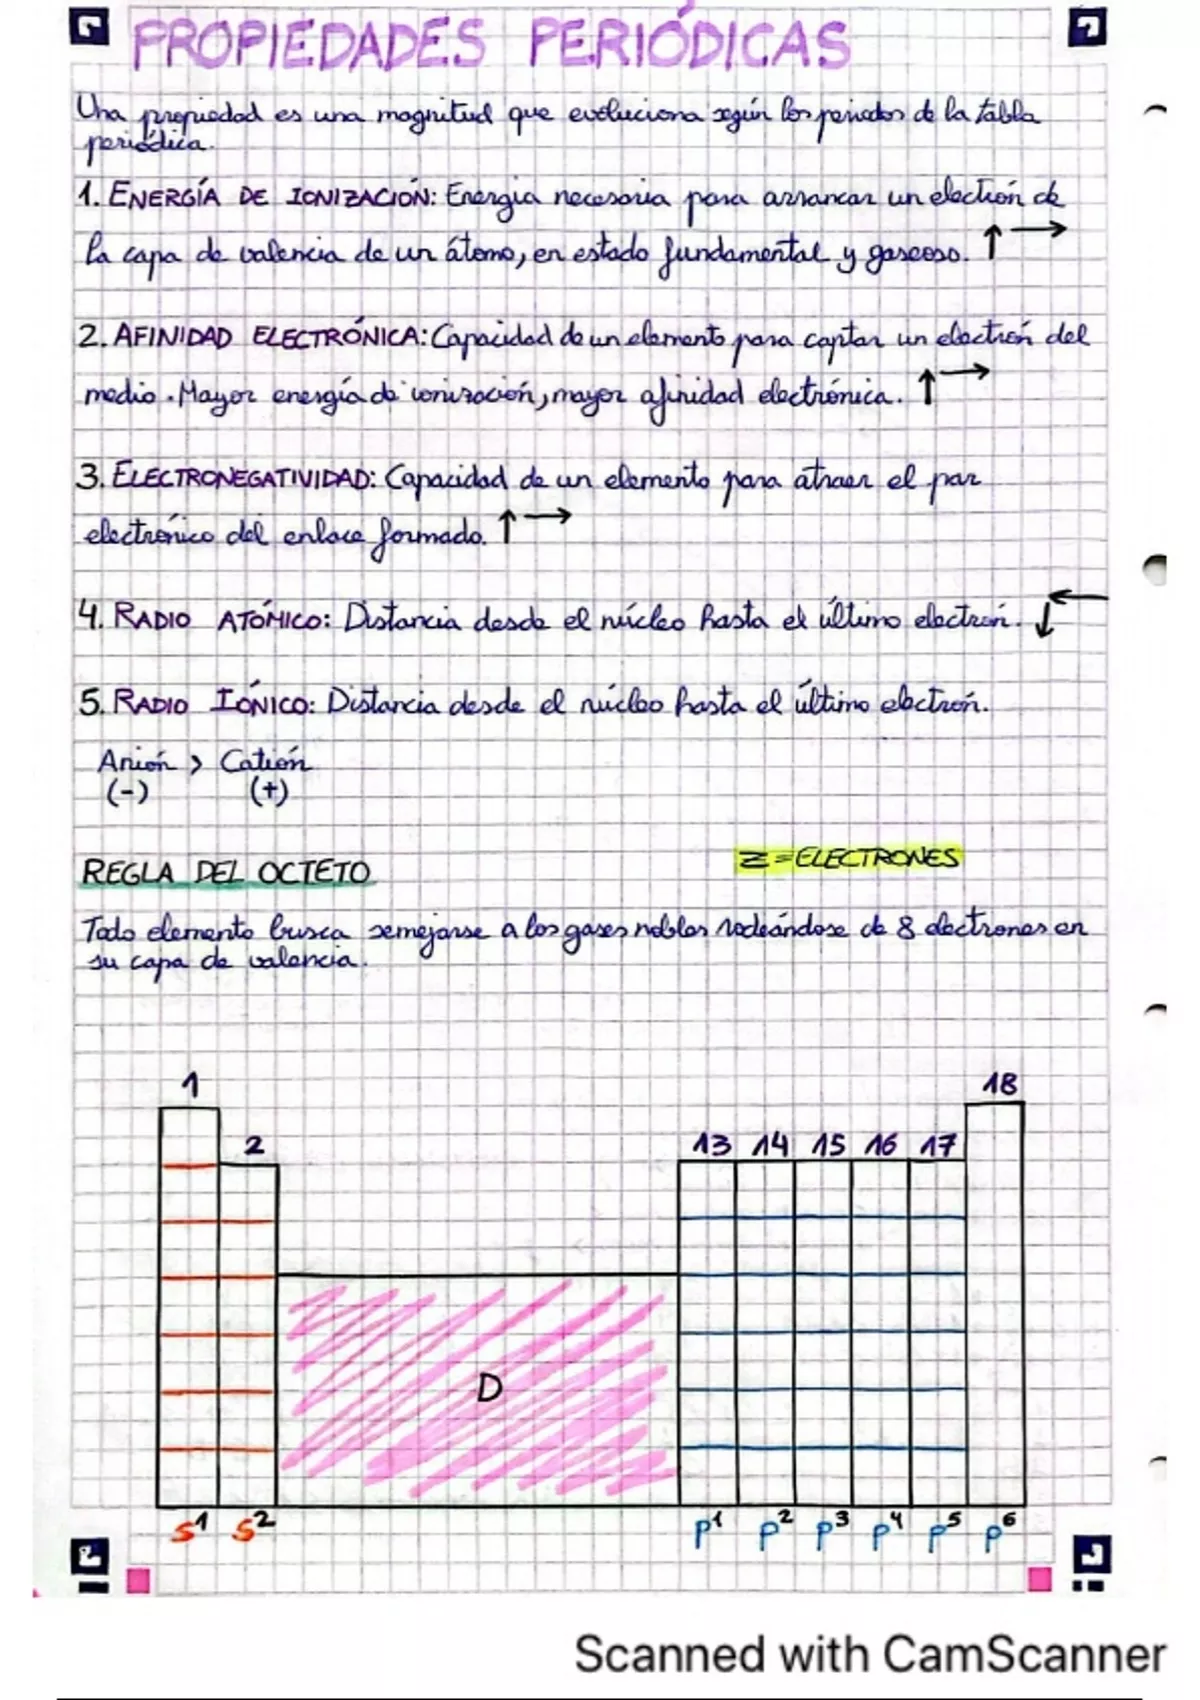 PROPIEDADES PERIÓDICAS
Una propiedad es una magnitud que evoluciona según los periodos de la tabla
periódica.
1. ENERGÍA DE IONIZACIÓN: Energia necesaria para arrancar un electrón de
la capa de valencia de un átomo, en estado fundamental y gaseoso. ↑→
2. AFINIDAD ELECTRÓNICA: Capacidad de un elemento para captar un electrón del
medio. Mayor energía de ionización, mayor afinidad electrónica. ↑→
3. ELECTRONEGATIVIDAD: Capacidad de un elemento para atraer el par
electrónico del enlace formado. ↑→
4. RADIO ATÓMICO: Distancia desde el núcleo hasta el último electrón. ↓←
5. RADIO IÓNICO: Distancia desde el núcleo hasta el último electrón.
Anión > Catión
(-) (+)
REGLA DEL OCTETO
Z = ELECTRONES
Todo elemento busca semejarse a los gases nobles rodeándose de 8 electrones en
su capa de valencia.
1 18
2 13 14 15 16 17
D
s¹ s² p¹ p² p³ p⁴ p⁵ p⁶
Scanned with CamScanner